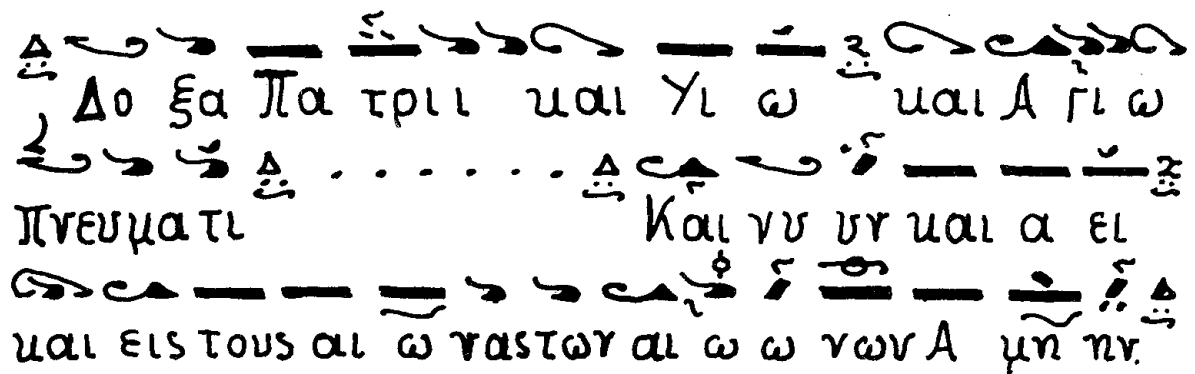 Δο ξα Πα τριι και Υι ω και Α γι ω
Πνευμα τι Και νυ υν και α ει
και εις τους αι ω νας των αι ω ω νων Α μη ην.